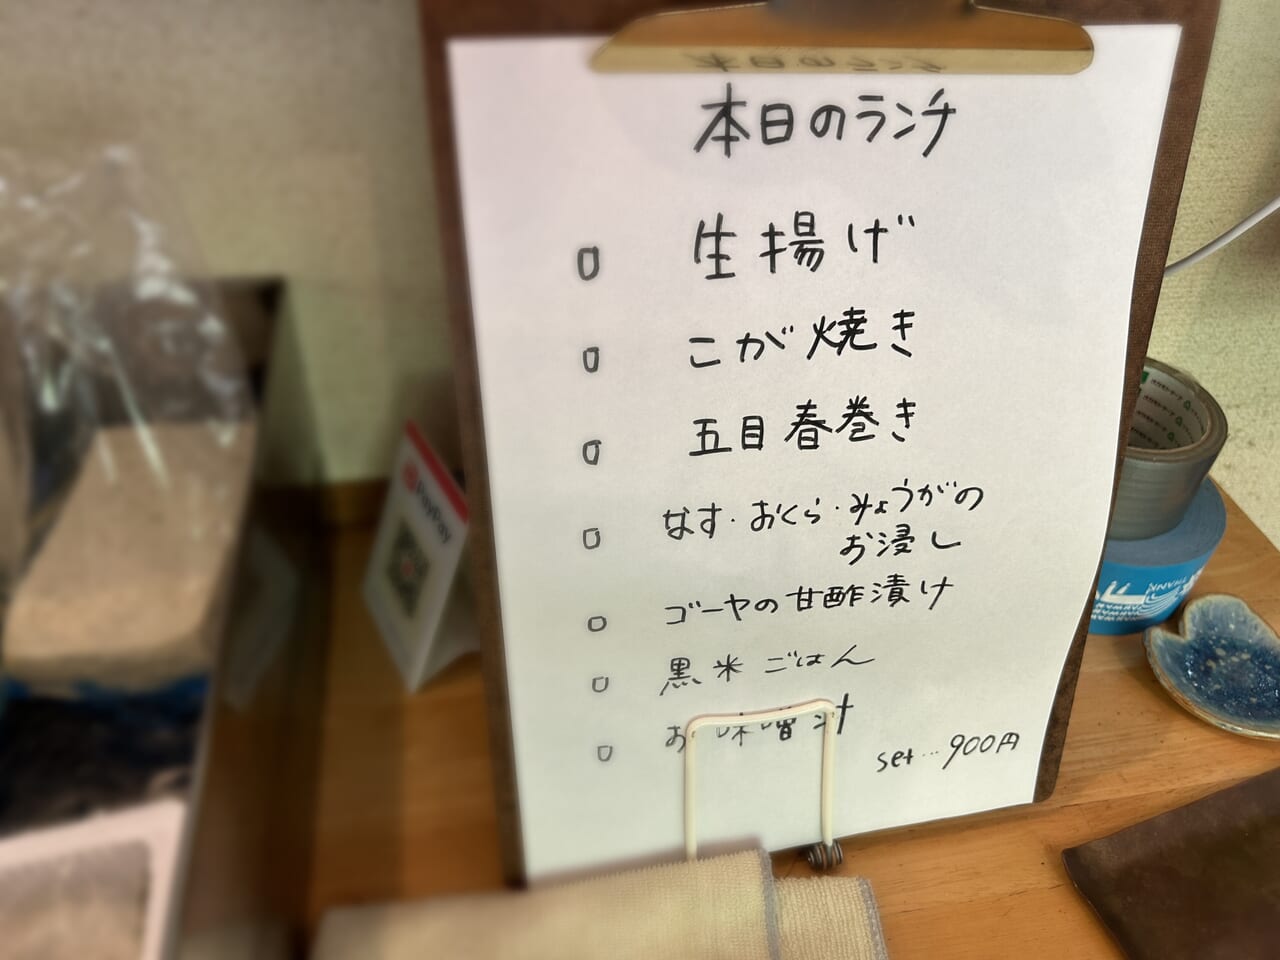 本日のランチ
生揚げ
こが焼き
五目春巻き
なす・おくら・みょうがの
お浸し
ゴーヤの甘酢漬け
黒米ごはん
お味噌汁
set…900円
PayPay